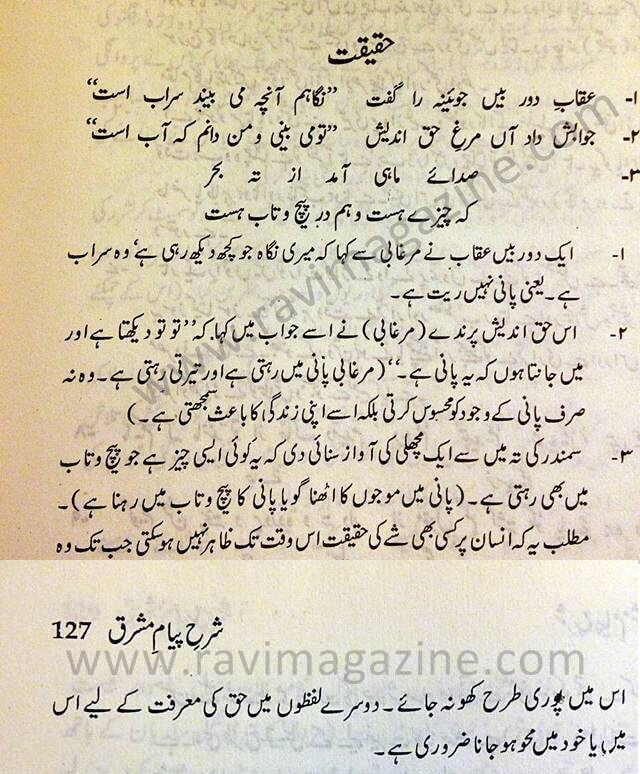 حقیقت
۱- عقابِ دور بیں جوئینہ را گفت "نگاہم آنچہ می بیند سراب است"
۲- جوابش داد آں مرغِ حق اندیش "تومی بینی ومن دانم کہ آب است"
۳- صدائے ماہی آمد از تہِ بحر
کہ چیزے ہست و ہم در پیچ و تاب ہست
۱- ایک دور بیں عقاب نے مرغابی سے کہا کہ میری نگاہ جو کچھ دیکھ رہی ہے، وہ سراب
ہے۔ یعنی پانی نہیں ریت ہے۔
۲- اس حق اندیش پرندے (مرغابی) نے اسے جواب میں کہا، کہ "تو تو دیکھتا ہے اور
میں جانتا ہوں کہ یہ پانی ہے۔" (مرغابی پانی میں رہتی ہے اور تیرتی رہتی ہے۔ وہ نہ
صرف پانی کے وجود کو محسوس کرتی بلکہ اسے اپنی زندگی کا باعث سمجھتی ہے۔)
۳- سمندر کی تہ میں سے ایک مچھلی کی آواز سنائی دی کہ یہ کوئی ایسی چیز ہے جو پیچ و تاب
میں بھی رہتی ہے۔ (پانی میں موجوں کا اٹھنا گویا پانی کا پیچ و تاب میں رہنا ہے)۔
مطلب یہ کہ انسان پر کسی بھی شے کی حقیقت اس وقت تک ظاہر نہیں ہو سکتی جب تک وہ
شرح پیامِ مشرق 127
www.ravimagazine.com
اس میں پوری طرح کھو نہ جائے۔ دوسرے لفظوں میں حق کی معرفت کے لیے اس
میں یا خود میں محو ہو جانا ضروری ہے۔
www.ravimagazine.com